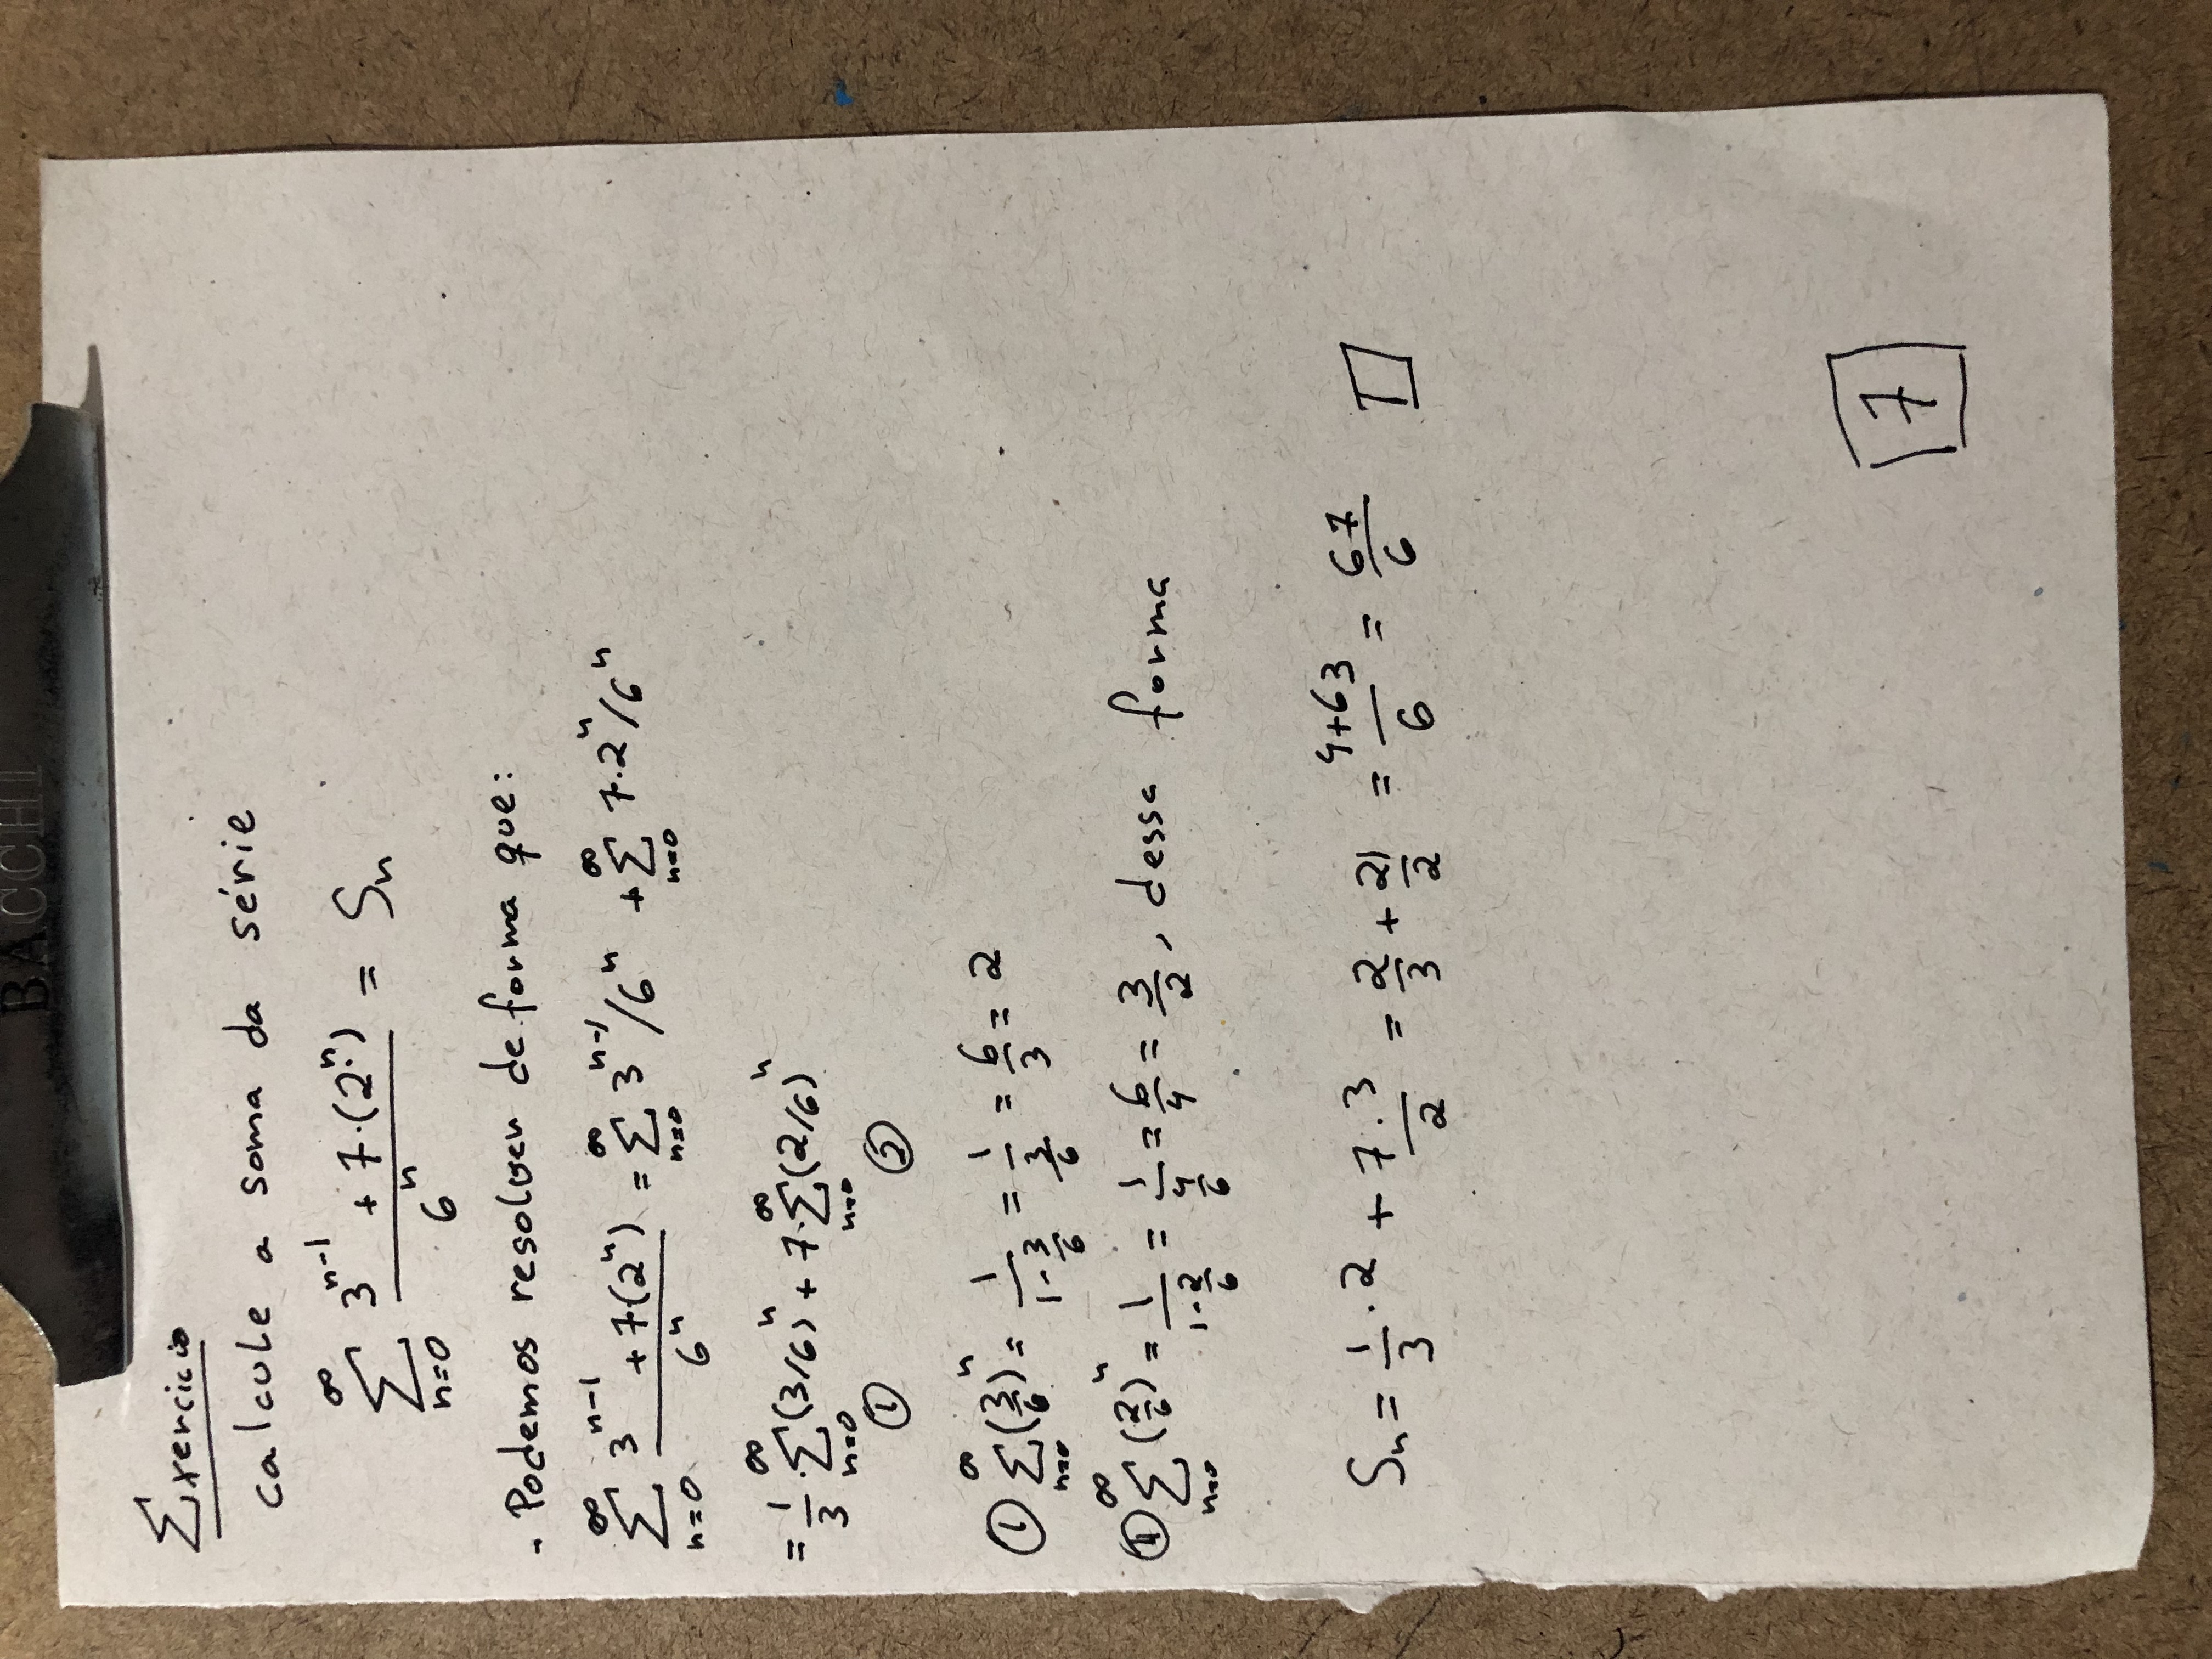 BACCHI
Exercicio
calcule a soma da série
∞∑n=0 (3^(n-1) + 7·(2^n))/6^n = Sn
- Podemos resolver de forma que:
∞∑n=0 (3^(n-1) + 7·(2^n))/6^n = ∞∑n=0 3^(n-1)/6^n + ∞∑n=0 7·2^n/6^n
= 1/3 · ∞∑n=0 (3/6)^n + 7·∞∑n=0 (2/6)^n
① ②
① ∞∑n=0 (3/6)^n = 1/(1-3/6) = 1/(3/6) = 6/3 = 2
② ∞∑n=0 (2/6)^n = 1/(1-2/6) = 1/(4/6) = 6/4 = 3/2, dessa forma
Sn = 1/3 · 2 + 7·3/2 = 2/3 + 21/2 = (4+63)/6 = 67/6 □
7